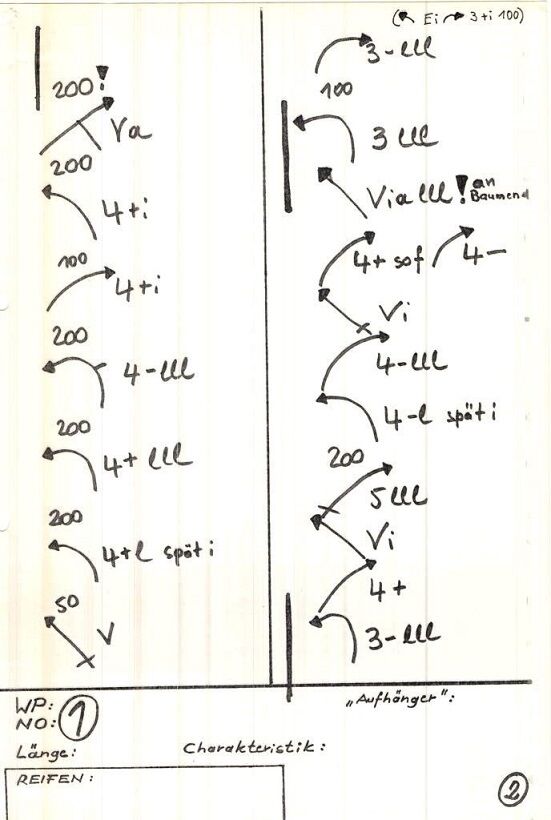 200!
Va
200
4+i
100
4+i
200
4-lll
200
4+ lll
200
4+l spät i
50
V
(Ei 3+i 100)
3-lll
100
3 lll
Via lll! an Baumend
4+ sof 4-
Vi
4-lll
4-l spät i
200
5 lll
Vi
4+
3-lll
WP:
NO: 1
Länge:
Charakteristik:
„Aufhänger":
REIFEN:
2